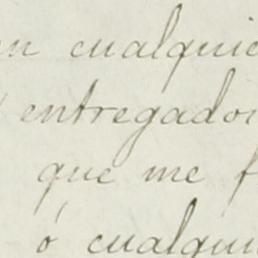 en cualquie
entregador
que me f
ó cualqui